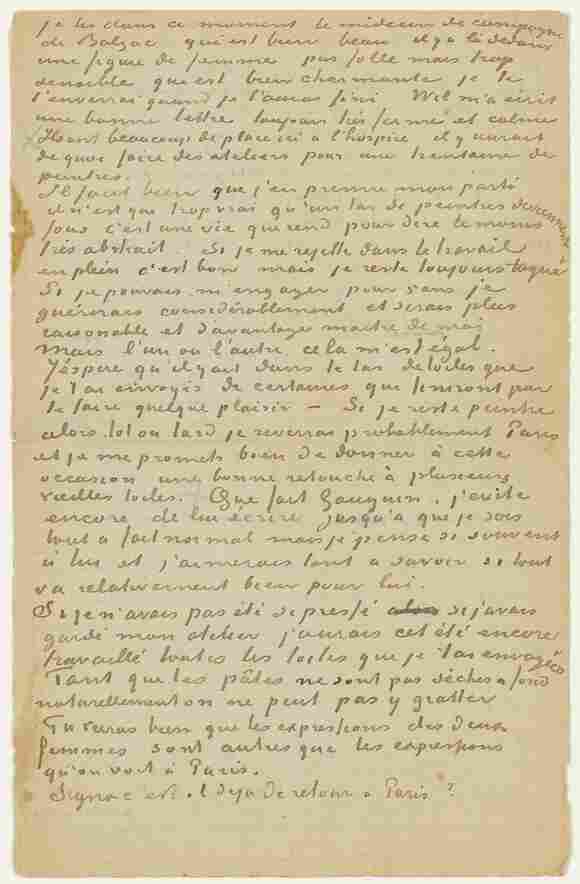 je lis dans ce moment le médecin de campagne
de Balzac qui est bien beau il y a là dedans
une figure de femme pas folle mais trop
sensible qui est bien charmante je te
l'enverrai quand je l'aurai fini. Wil m'a écrit
une bonne lettre toujours très ferme et calme
Ils ont beaucoup de place ici à l'hospice il y aurait
de quoi faire des ateliers pour une trentaine de
peintres.
Il faut bien que j'en prenne mon parti
il n'est que trop vrai qu'un tas de peintres deviennent
fous c'est une vie qui rend pour dire le moins
très abstrait. Si je me rejette dans le travail
en plein c'est bon mais je reste toujours toqué
Si je pouvais m'engager pour 5 ans je
guérirais considérablement et serais plus
raisonable et davantage maitre de moi
mais l'un ou l'autre cela m'est égal.
J'espère qu'il y ait dans le tas de toiles que
je t'ai envoyés de certaines qui finiront par
te faire quelque plaisir — Si je reste peintre
alors tot ou tard je reverrai probablement Paris
et je me promets bien de donner à cette
occasion une bonne retouche à plusieurs
vieilles toiles. Que fait Gauguin, j'évite
encore de lui écrire jusqu'à que je sois
tout à fait normal mais je pense si souvent
à lui et j'aimerais tant à savoir si tout
va relativement bien pour lui.
Si je n'avais pas été si pressé si j'avais
gardé mon atelier j'aurais cet été encore
travaillé toutes les toiles que je t'ai envoyés
Tant que les pâtes ne sont pas sèches à fond
naturellement on ne peut pas y gratter
Tu verras bien que les expressions des deux
femmes sont autres que les expressions
qu'on voit à Paris.
Signac est-il déjà de retour à Paris ?